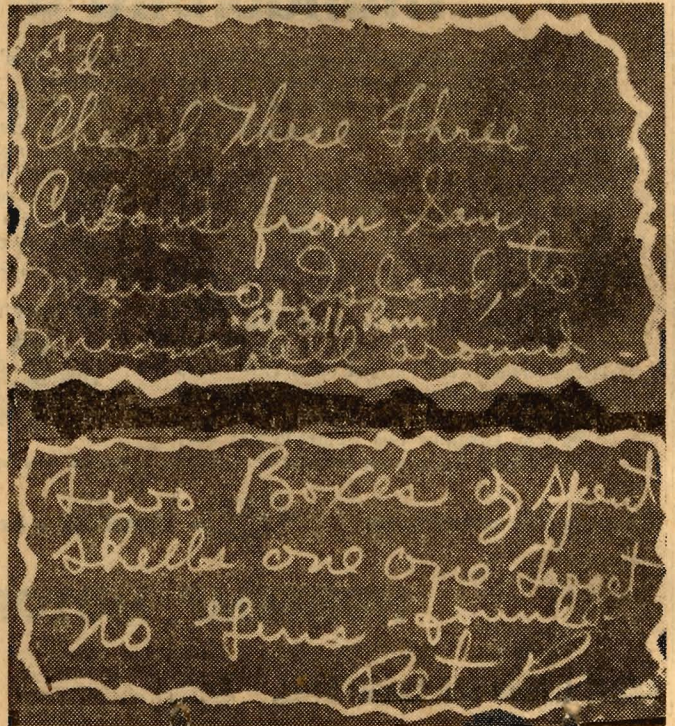 Ed
Chased These Three
Cubans from San
marino Island, to
at
miami all around -
Two Boxes of spent
shells one
no guns -found-
Pat K